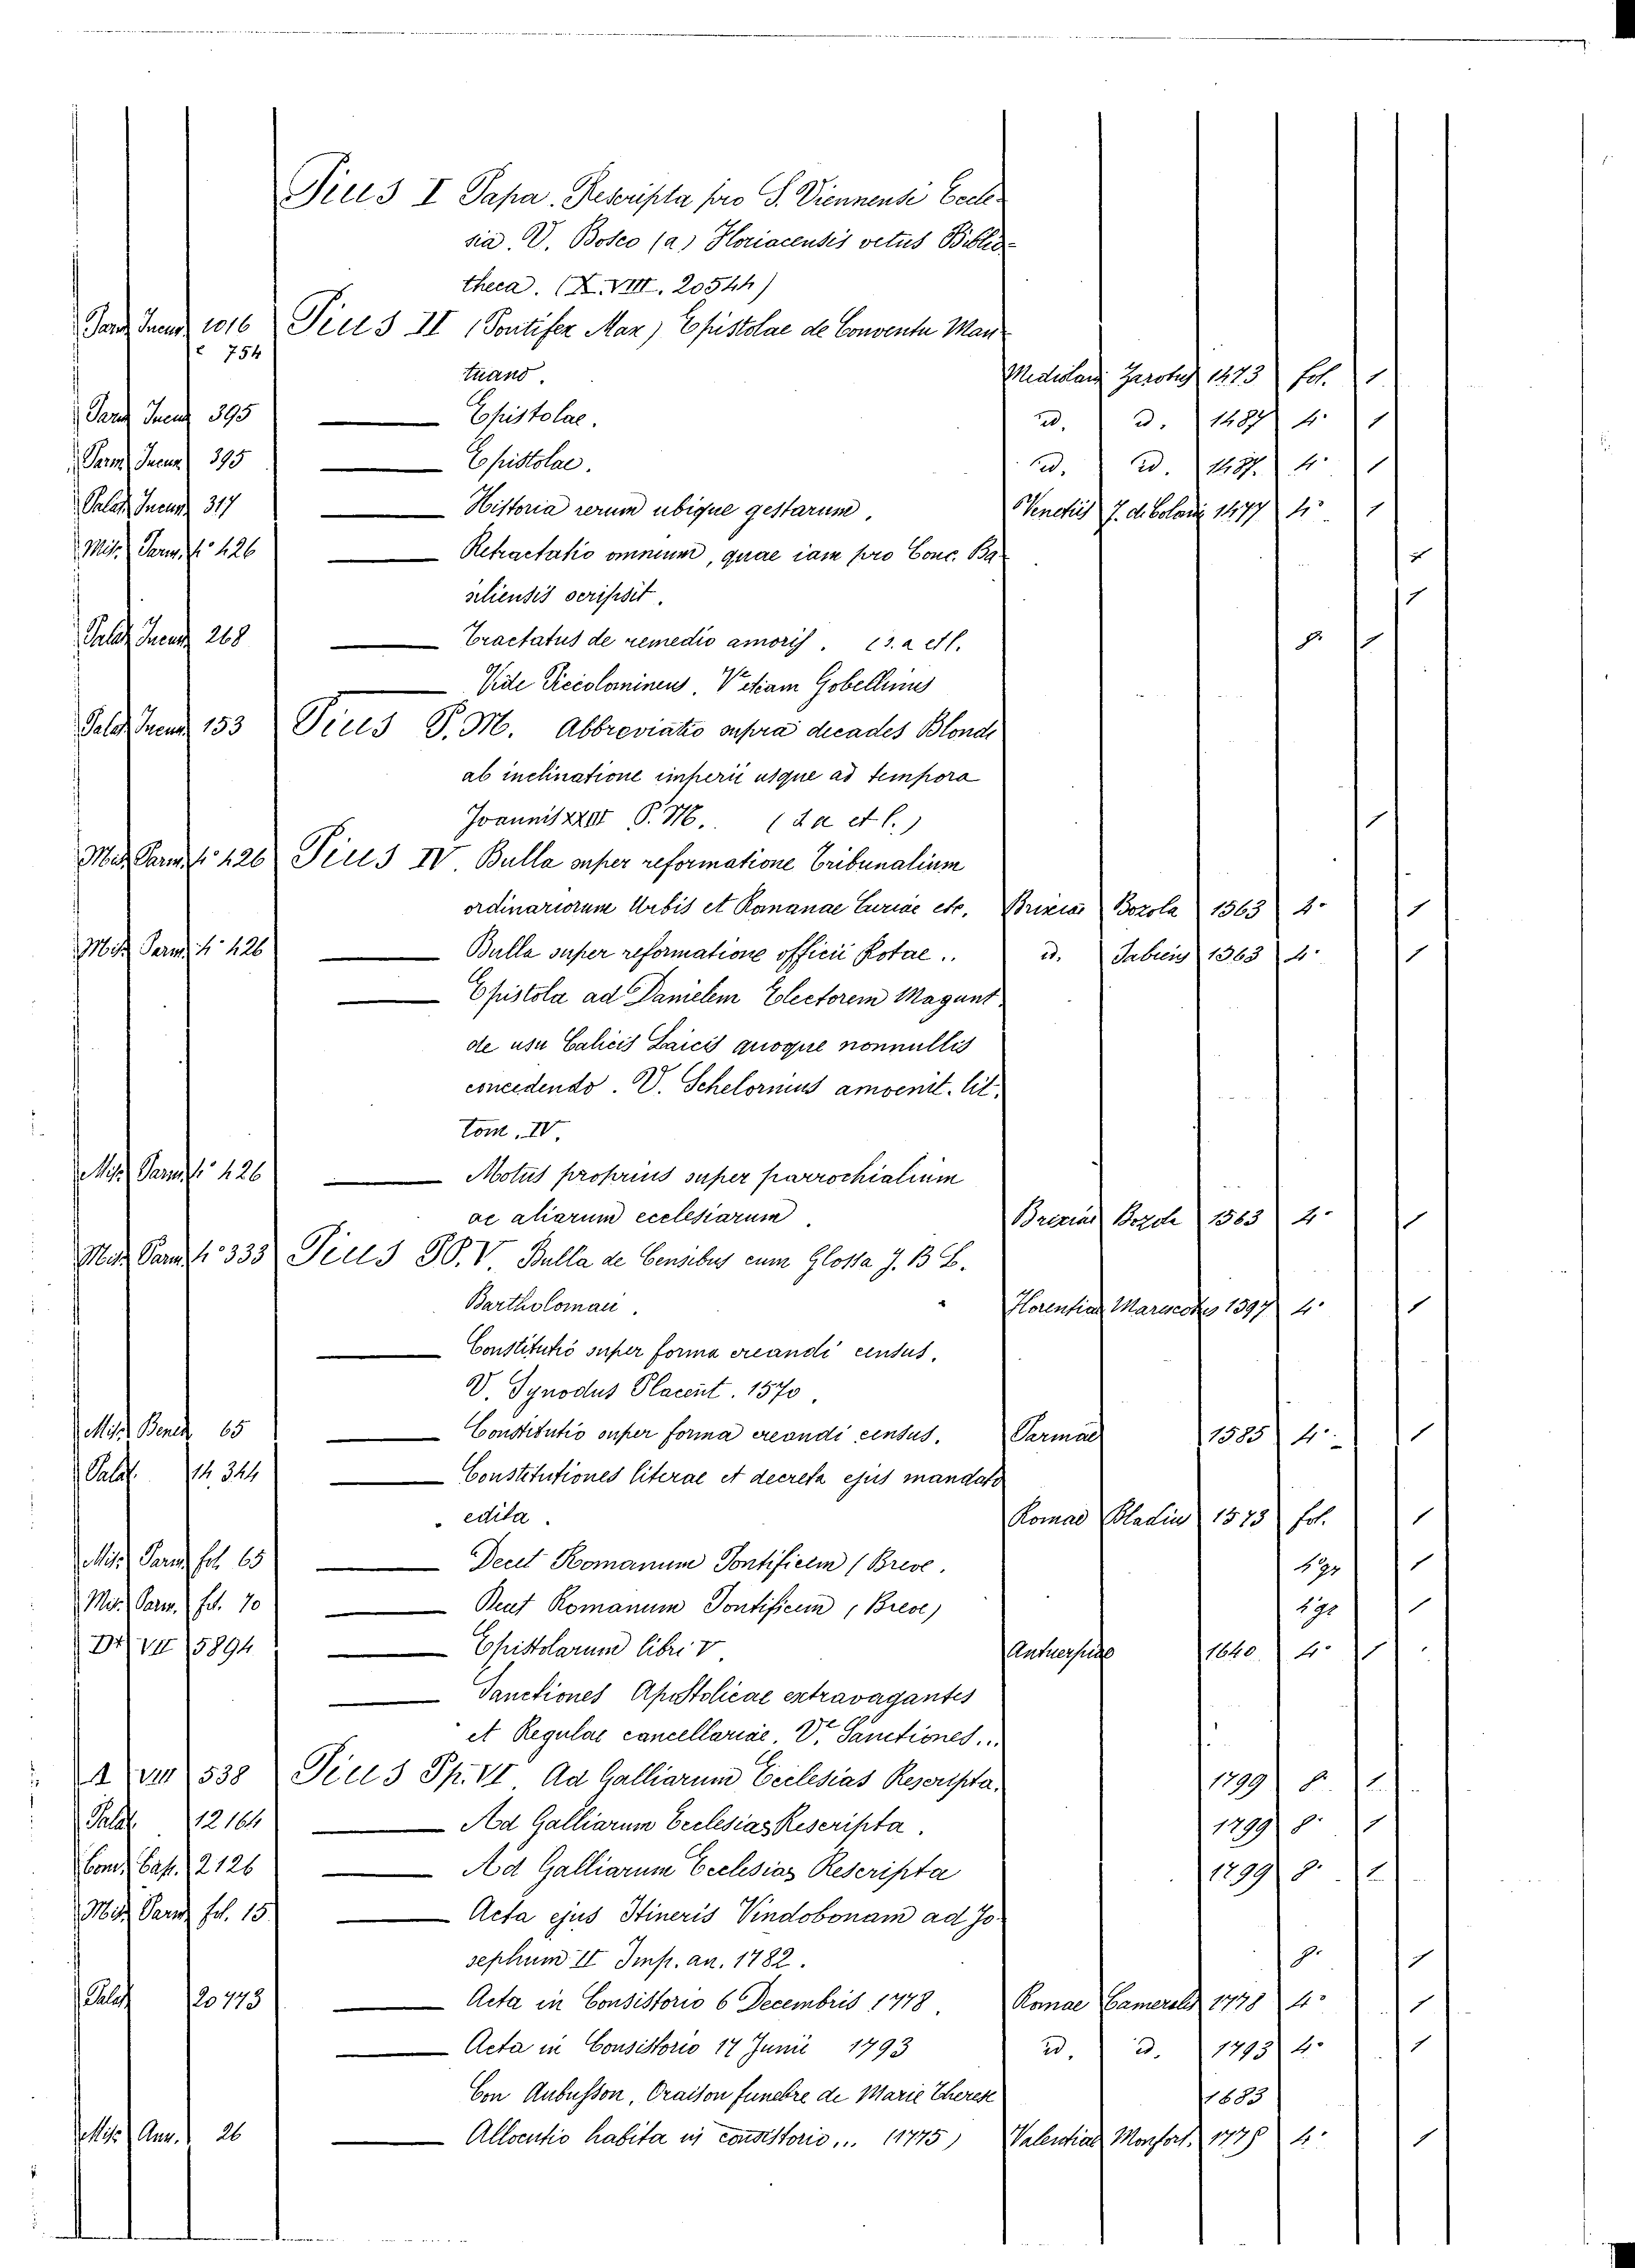 Pius I Papa. Rescripta pro S. Viennensi Eccle-
sia. V. Bosco (a) Floriacensis vetus Biblio-
theca. (X. VIII. 20544)
Parm Incun 1016 Pius II (Pontifex Max) Epistolae de Conventu Man-
e 754
tuano. Mediolani Zarotus 1473 fol. 1
Parm Incun 395 Epistolae. id. id. 1487 4° 1
Parm Incun 395 Epistolae. id. id. 1487. 4° 1
Palat Incun 317 Historia rerum ubique gestarum. Venetiis J. de Colonia 1477 4° 1
Misc. Parm. 4° 426 Retractatio omnium, quae iam pro Conc. Ba- 1
siliensis scripsit. 1
Palat Incun 268 Tractatus de remedio amoris. (s. a et l. 8° 1
Vide Piccolomineus, V etiam Gobellinus
Palat Incun 153 Pius P. M. Abbreviatio supra decades Blondi
ab inclinatione imperii usque ad tempora
Joannis XXIII P. M. (s a et l.) 1
Misc Parm 4° 426 Pius IV. Bulla super reformatione Tribunalium
ordinariorum Urbis et Romanae Curiae etc. Brixiae Bozola 1563 4° 1
Misc Parm 4° 426 Bulla super reformatione officii Rotae.. id. Sabiens 1563 4° 1
Epistola ad Danielem Electorem Magunt.
de usu Calicis Laicis quoque nonnullis
concedendo. V. Schelornius amoenit. lit.
tom. IV.
Misc Parm 4° 426 Motus proprius super parrochialium
ac aliarum ecclesiarum. Brixiae Bozola 1563 4° 1
Misc Parm 4° 333 Pius PP. V. Bulla de Censibus cum Glossa J. B L.
Bartholomaei. Florentiae Marescotus 1597 4° 1
Constitutió super forma creandi census.
V. Synodus Placent. 1570.
Misc Bened 65 Constitutio super forma creandi census. Parmae 1585 4° 1
Palat. 14 344 Constitutiones literae et decreta ejus mandato
edita. Romae Bladius 1573 fol. 1
Misc Parm fol. 65 Decet Romanum Pontificem (Breve. 4° gr 1
Misc. Parm. fol. 70 Decet Romanum Pontificem (Breve) 4° gr 1
D* VII 5894 Epistolarum libri V. Antuerpiae 1640 4° 1
Sanctiones Apostolicae extravagantes
et Regulae cancellariae. V. Sanctiones...
A VIII 538 Pius Pp. VI. Ad Galliarum Ecclesias Rescripta. 1799 8° 1
Palat. 12164 Ad Galliarum Ecclesias Rescripta. 1799 8° 1
Com. Cap. 2126 Ad Galliarum Ecclesias Rescripta 1799 8° 1
Misc Parm fol. 15 Acta ejus Itineris Vindobonam ad Jo-
sephum II Imp. an. 1782. 8° 1
Palat 20773 Acta in Consistorio 6 Decembris 1778. Romae Cameralis 1778 4° 1
Acta in Consistorio 17 Junii 1793 id. id. 1793 4° 1
Con Aubusson, Oraison funebre de Marie Therese 1683
Misc Ann. 26 Allocutio habita in consistorio... (1775) Valentiae Monfort. 1775 4° 1